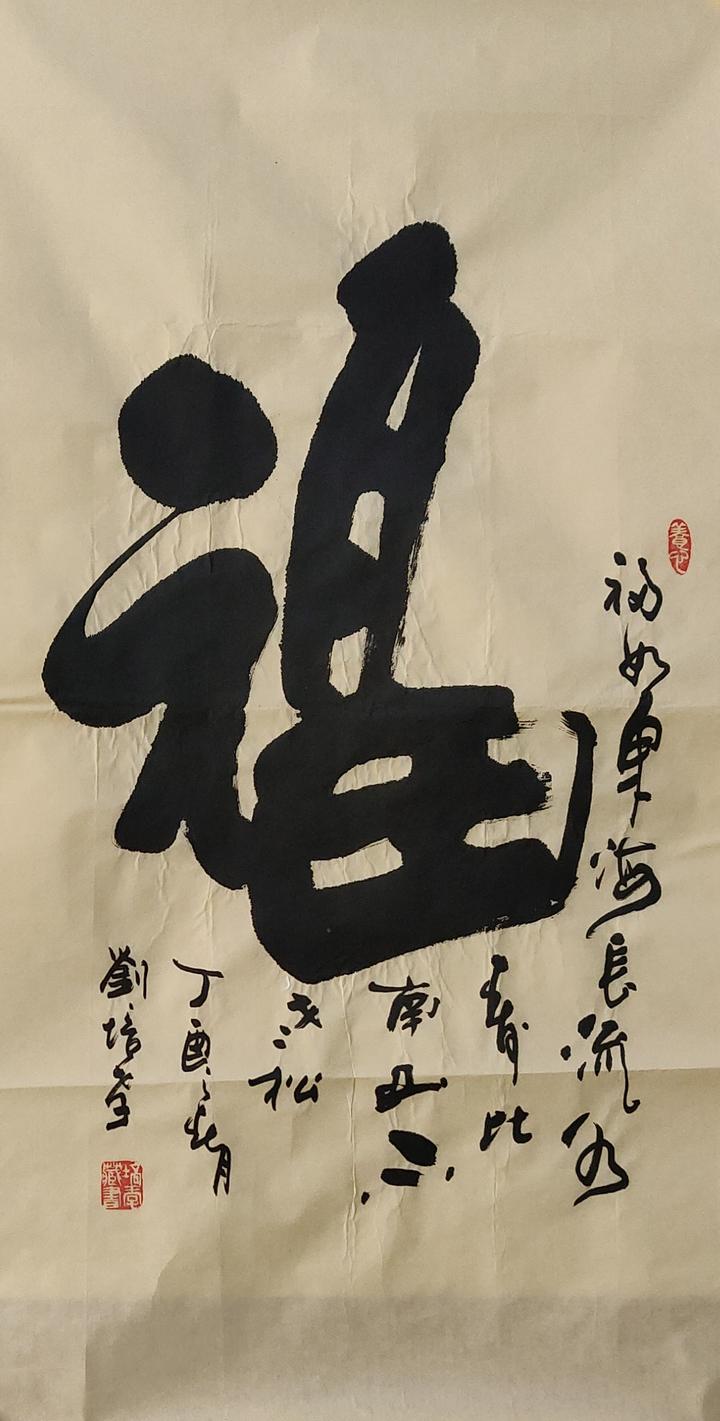 福
福如東海長流水
壽比
南山不
老松
丁酉年春月
劉培孝